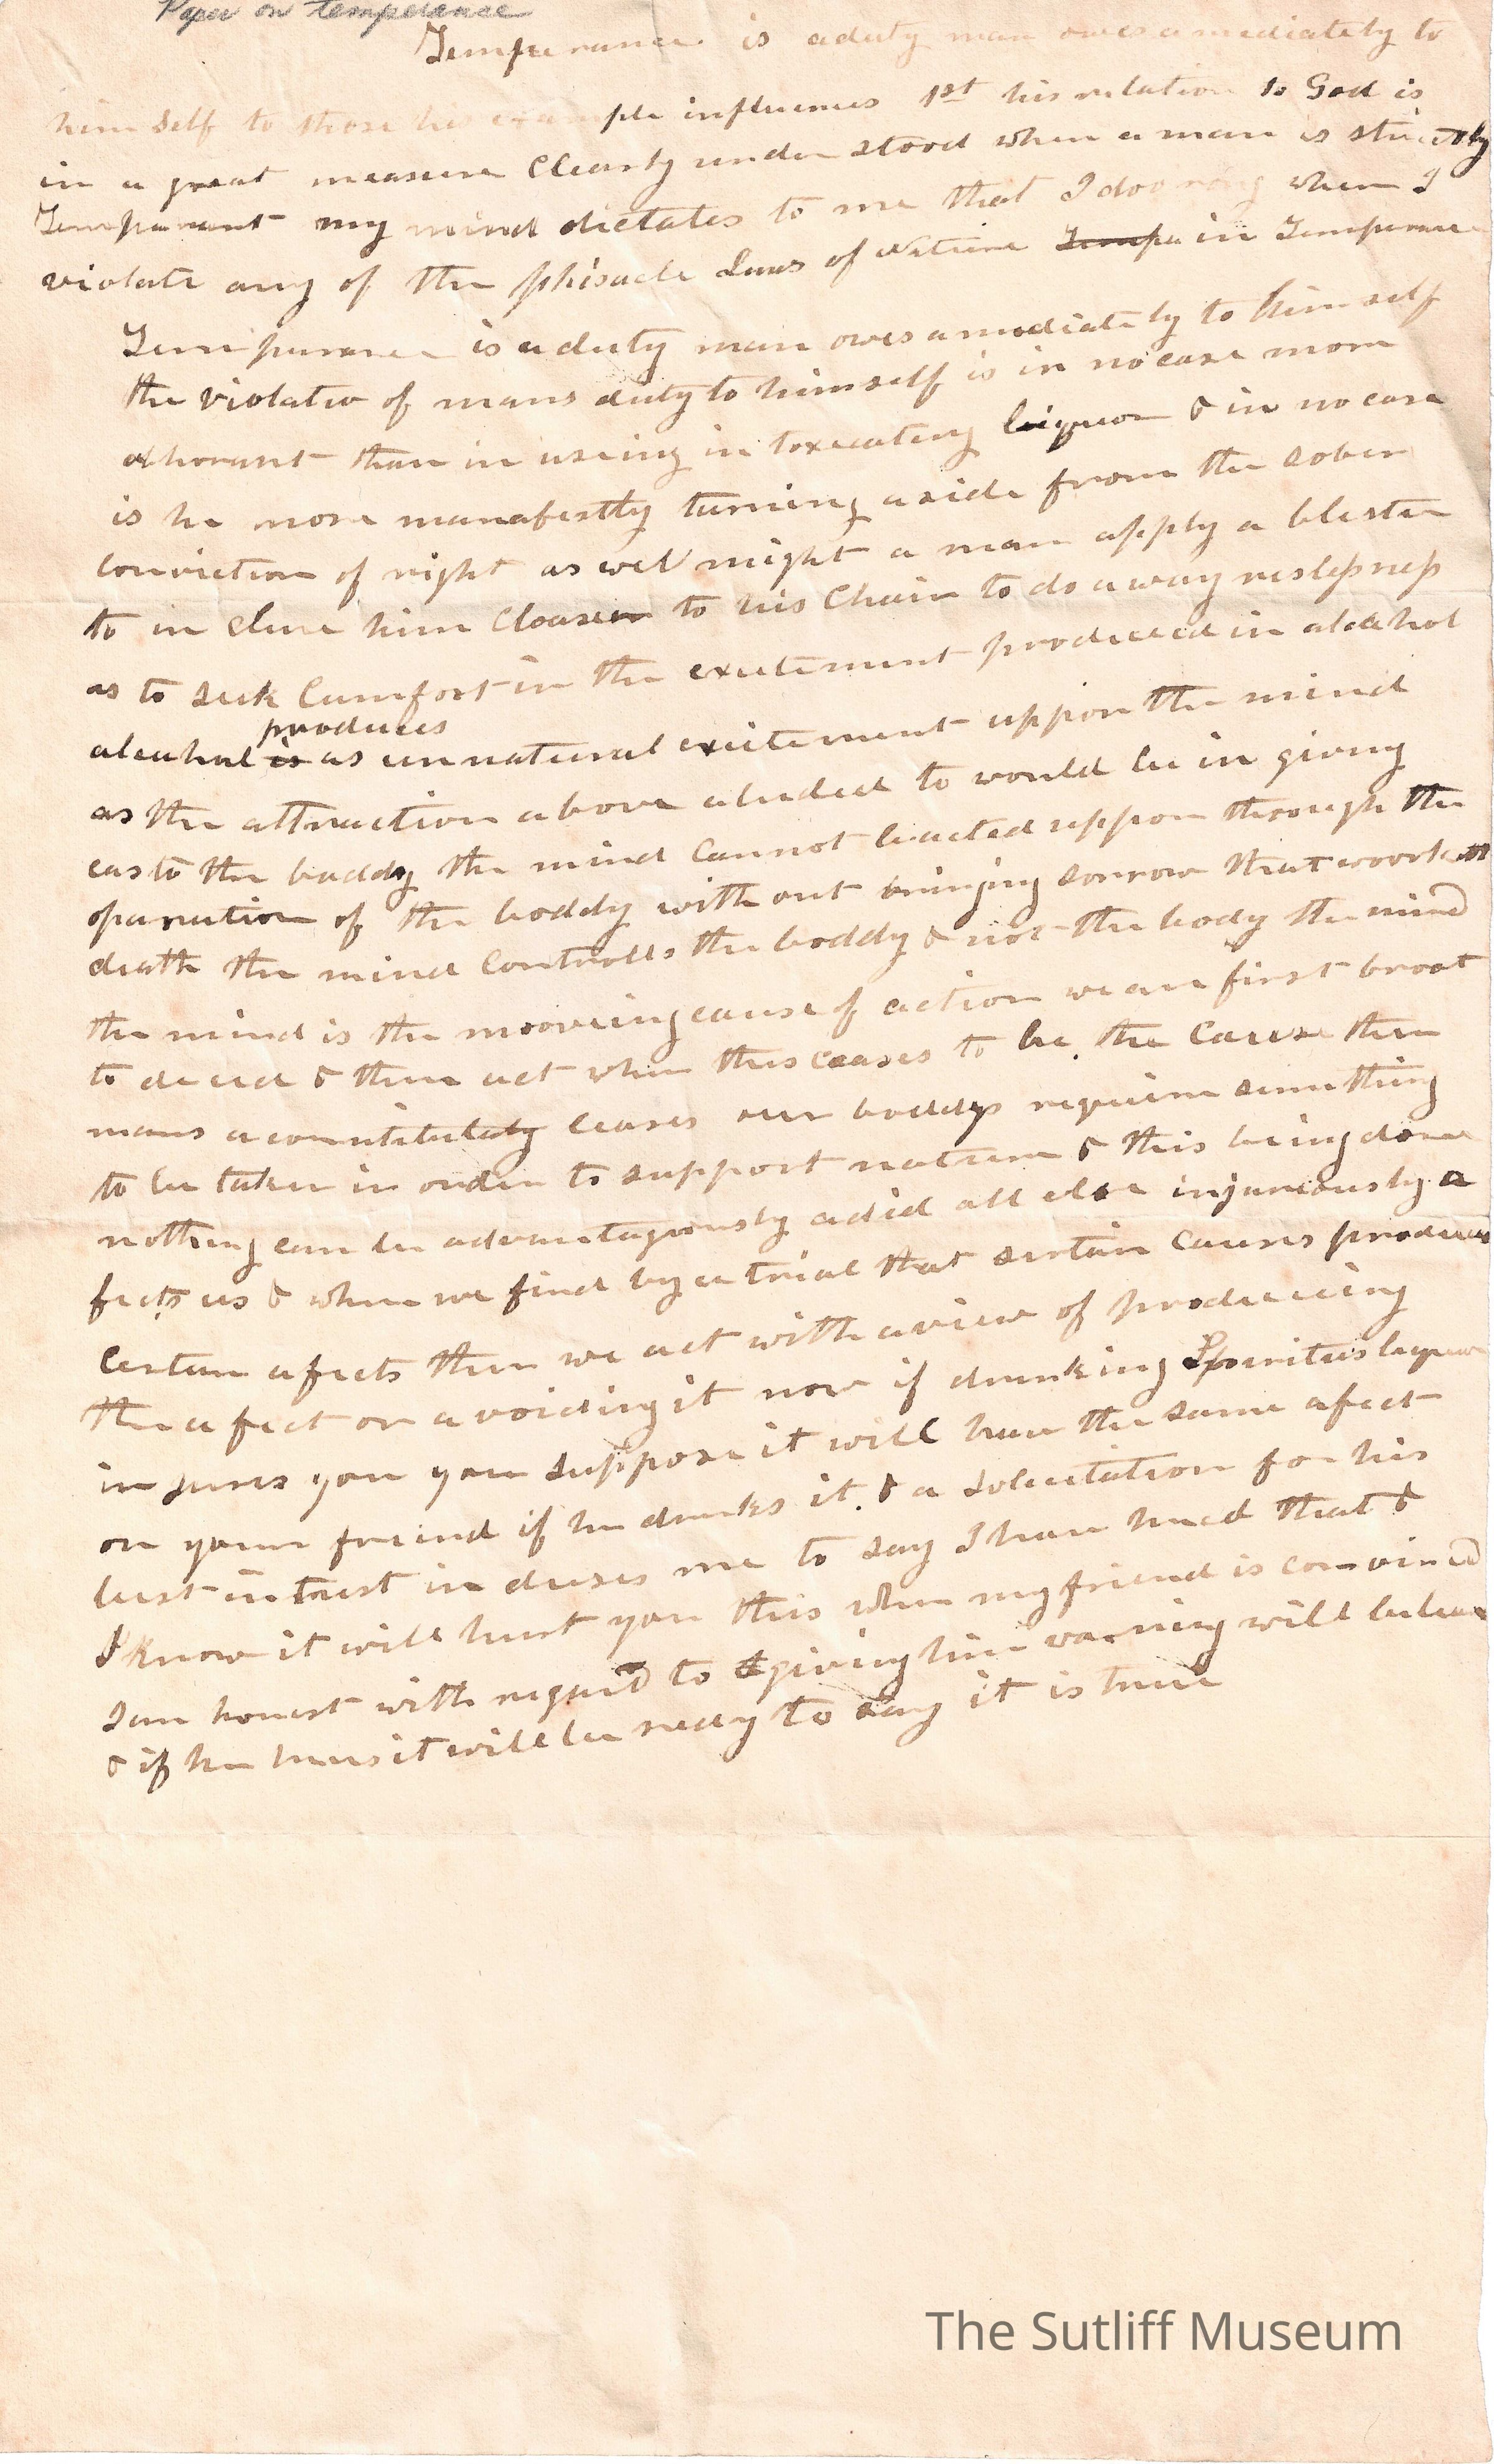 Paper on temperance
Temperance is a duty man owes amediately to
him self to those his example influences 1st his relation to God is
in a great measure Clearly under stood when a man is strictly
Temparant my mind dictates to me that I doo rong when I
violate any of the phisacle Laws of Nature Tempe in Temperance
Temperance is a duty man owes amediately to him self
the violateo of mans duty to himself is in no case more
abhorant than in useing in toxecateng liquor & in no case
is he more manafestly turning aside from the sober
conviction of right as wel might a man apply a blester
to in duce him Closeer to his Chair to do a way reslessness
as to seek Cumfort in the exciterment produced in alcahol
produces
alcahol is as unnatural excitement uppon the mind
as the attraction above aluded to would be in giving
eas to the boddy the mind Cannot be acted uppon through the
oparation of the boddy with out bringing sorrow that worketh
death the mind Controlls the boddy & not the body the mind
the mind is the mooveing cause of action we are first broat
to deced & then act when this ceases to be the Cause then
mans acountibilaty Ceases our boddys require something
to be taken in order to support nature & this being done
nothing can be advantagously adid all else injureously a
fects us & when we find by a trial that sertain Causes produces
Certain afects then we act with a view of produceing
the afect or a voiding it now if drinking Speritus liquor
in jures you you suppose it will have the same afect
on your freind if he drinks it & a solicitation for his
best intrest in duses me to say I have tried that &
I know it will hurt you this when my friend is convinced
I am honest with regard to giving him warning will beleave
& if he tries it will be redy to say it is true
The Sutliff Museum